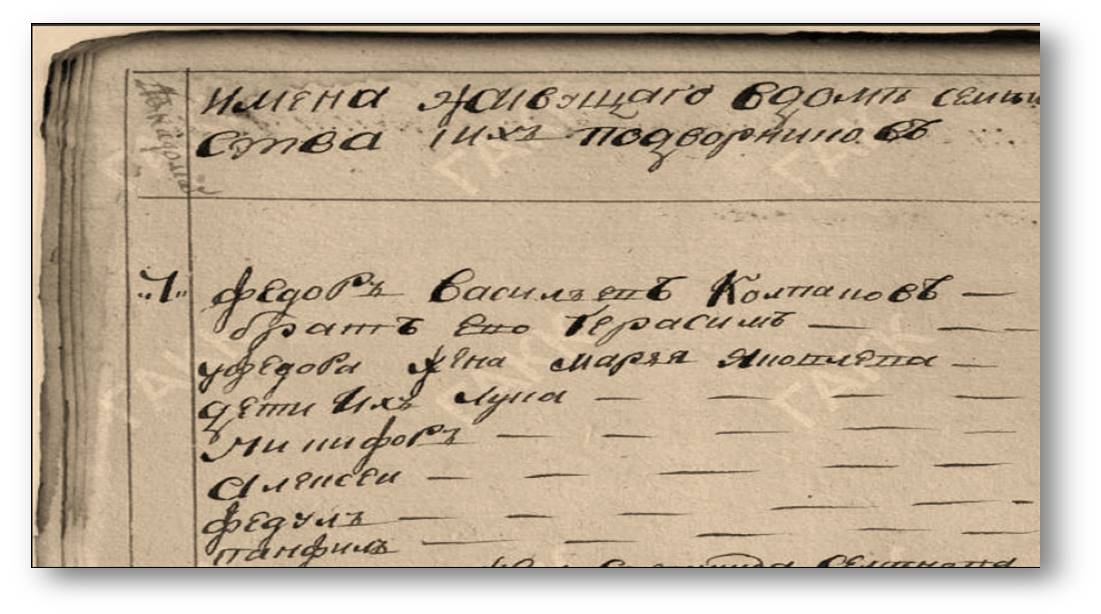 имена жаивущаго вдоме семеи
ства иихъ подворниковъ
№ надомай
"1" федоръ Васильевъ Колпаковъ
братъ ево Герасимъ
уфедора жена марья яковлева
дети ихъ лука
никифоръ
алексеи
федулъ
панфилъ
ГАКК